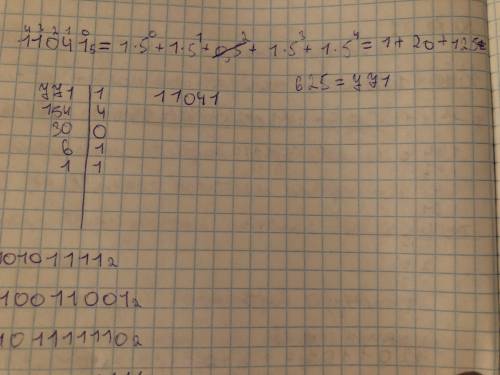 4 3 2 1 0
11041₅ = 1·5⁰ + 1·5¹ + 0·5² + 1·5³ + 1·5⁴ = 1 + 20 + 125 +
625 = 771
771 | 1 11041
154 | 4
30 | 0
6 | 1
1 | 1
01011111₂
10011001₂
1011111110₂